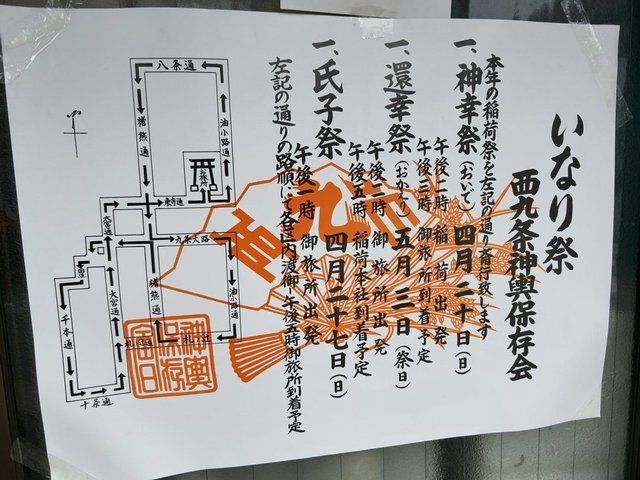 いなり祭
西九条神輿保存会
本年の稲荷祭を左記の通り斎行致します
一、神幸祭（おいで）四月二十日（日）
午後一時 稲荷出発
午後三時 御旅所到着予定
一、還幸祭（おかえり）五月三日（祭日）
午後三時 御旅所出発
午後五時 稲荷本社到着予定
一、氏子祭 四月二十七日（日）
午後一時 御旅所出発
左記の通りの路順にて各区内渡御、午後五時御旅所到着予定
八条通
猪熊通
油小路通
御旅所
東寺通
大宮通
九条大路
油小路通
猪熊通
大宮通
札ノ辻通
千本通
十条通
九
神輿
保存